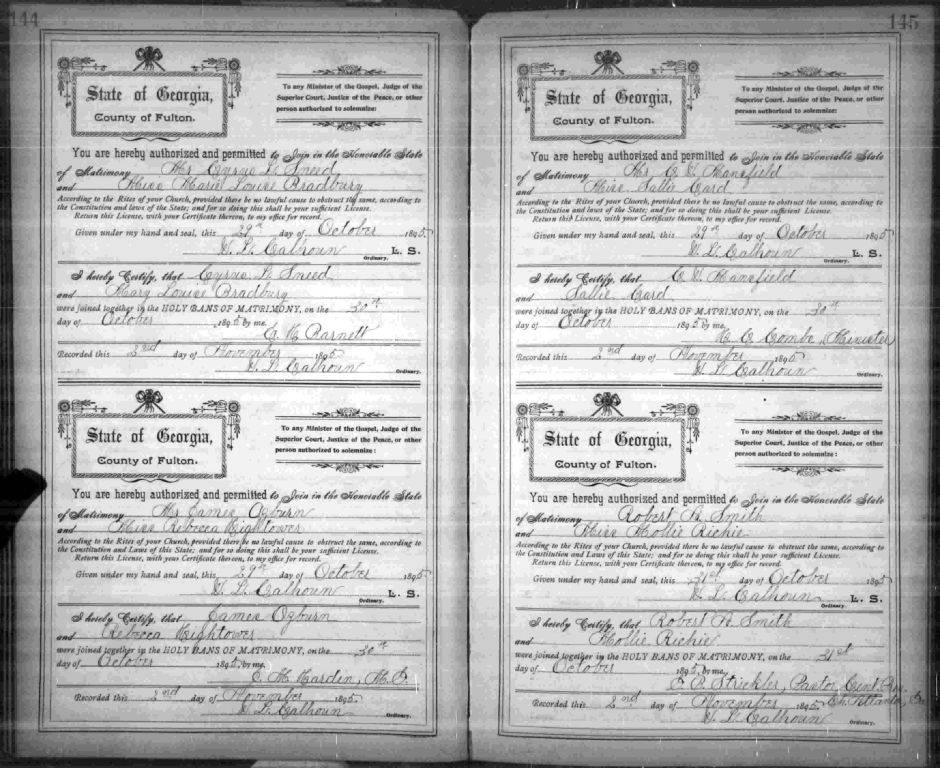 144
State of Georgia,
County of Fulton.
To any Minister of the Gospel, Judge of the
Superior Court, Justice of the Peace, or other
person authorized to solemnize:
You are hereby authorized and permitted to Join in the Honorable State
of Matrimony Mr Cyrus L. Sneed
and Miss Marie Louise Bradbury
According to the Rites of your Church, provided there be no lawful cause to obstruct the same, according to
the Constitution and laws of the State; and for so doing this shall be your sufficient License.
Return this License, with your Certificate thereon, to my office for record.
Given under my hand and seal, this 29th day of October 1895
W. L. Calhoun L. S.
Ordinary.
I hereby Certify, that Cyrus L. Sneed
and Mary Louise Bradbury
were joined together in the HOLY BANS OF MATRIMONY, on the 30th
day of October, 1895 by me.
E H Barnett
Recorded this 2nd day of November 1895
W. L. Calhoun
Ordinary.
State of Georgia,
County of Fulton.
To any Minister of the Gospel, Judge of the
Superior Court, Justice of the Peace, or other
person authorized to solemnize:
You are hereby authorized and permitted to Join in the Honorable State
of Matrimony Mr James Ozburn
and Miss Rebecca Hightower
According to the Rites of your Church, provided there be no lawful cause to obstruct the same, according to
the Constitution and Laws of this State; and for so doing this shall be your sufficient License.
Return this License, with your Certificate thereon, to my office for record.
Given under my hand and seal, this 29th day of October 1895
W. L. Calhoun L. S.
Ordinary.
I hereby Certify, that James Ozburn
and Rebecca Hightower
were joined together in the HOLY BANS OF MATRIMONY, on the 30th
day of October 1895, by me,
E. H. Hardin, M.G.
Recorded this 2nd day of November 1895
W. L. Calhoun
Ordinary.
145
State of Georgia,
County of Fulton.
To any Minister of the Gospel, Judge of the
Superior Court, Justice of the Peace, or other
person authorized to solemnize:
You are hereby authorized and permitted to Join in the Honorable State
of Matrimony Mr C. V. Mansfield
and Miss Sallie Card
According to the Rites of your Church, provided there be no lawful cause to obstruct the same, according to
the Constitution and laws of the State; and for so doing this shall be your sufficient License.
Return this License, with your Certificate thereon, to my office for record.
Given under my hand and seal, this 29th day of October 1895
W. L. Calhoun L. S.
Ordinary.
I hereby Certify, that C. V. Mansfield
and Sallie Card
were joined together in the HOLY BANS OF MATRIMONY, on the 30th
day of October 1895 by me.
Combs, Minister
Recorded this 2nd day of November 1895
W. L. Calhoun
Ordinary.
State of Georgia,
County of Fulton.
To any Minister of the Gospel, Judge of the
Superior Court, Justice of the Peace, or other
person authorized to solemnize:
You are hereby authorized and permitted to Join in the Honorable State
of Matrimony Robert B. Smith
and Miss Mollie Richie
According to the Rites of your Church, provided there be no lawful cause to obstruct the same, according to
the Constitution and Laws of this State; and for so doing this shall be your sufficient License.
Return this License, with your Certificate thereon, to my office for record.
Given under my hand and seal, this 31st day of October 1895
W. L. Calhoun L. S.
Ordinary.
I hereby Certify, that Robert B. Smith
and Mollie Richie
were joined together in the HOLY BANS OF MATRIMONY, on the 31st
day of October 1895, by me,
Strickler, Pastor Cent. Pres.
Ch. Atlanta, Ga
Recorded this 2nd day of November 1895
W. L. Calhoun
Ordinary.